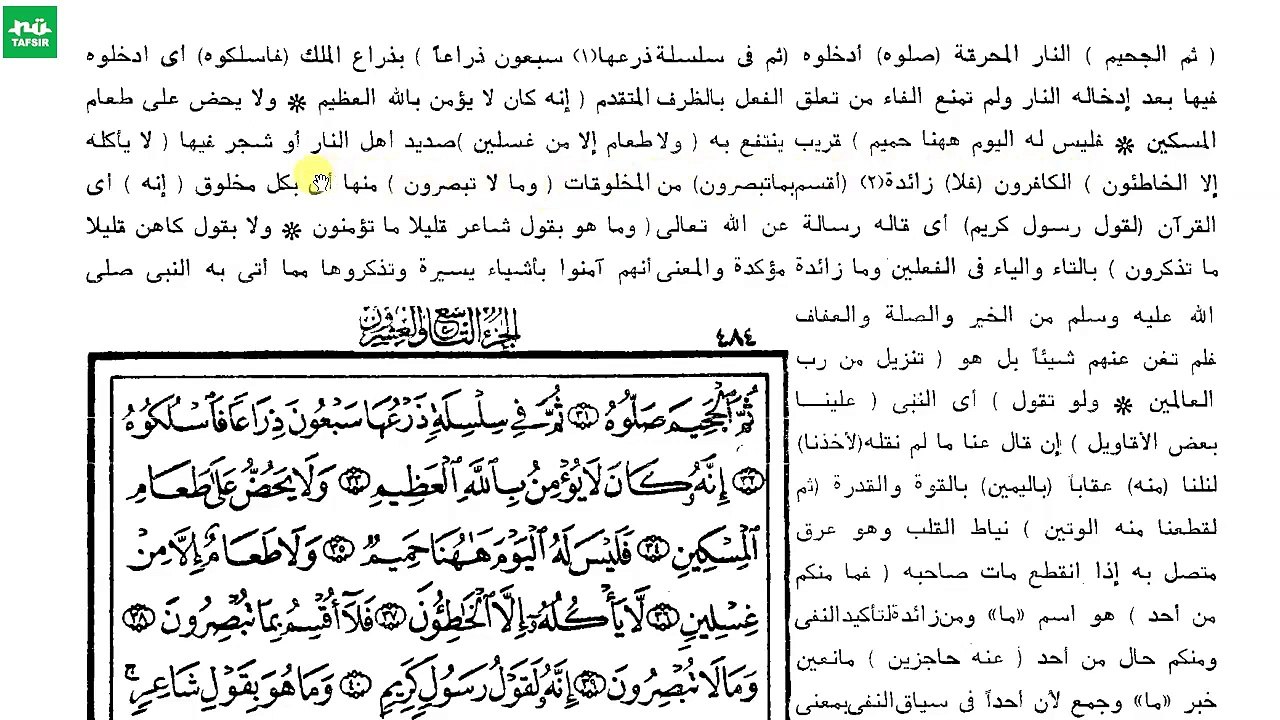 TAFSIR
( ثم الجحيم ) النار المحرقة (صلوه) أدخلوه (ثم فى سلسلة ذرعها(١) سبعون ذراعاً ) بذراع الملك (فاسلكوه) أى ادخلوه
فيها بعد إدخاله النار ولم تمنع الفاء من تعلق الفعل بالظرف المتقدم ( إنه كان لا يؤمن بالله العظيم * ولا يحض على طعام
المسكين * فليس له اليوم ههنا حميم ) قريب ينتفع به ( ولا طعام إلا من غسلين )صديد اهل النار أو شجر فيها ( لا يأكله
إلا الخاطئون ) الكافرون (فلا) زائدة(٢) (أقسم بما تبصرون) من المخلوقات ( وما لا تبصرون ) منها أى بكل مخلوق ( إنه ) أى
القرآن (لقول رسول كريم) أى قاله رسالة عن الله تعالى ( وما هو بقول شاعر قليلا ما تؤمنون * ولا بقول كاهن قليلا
ما تذكرون ) بالتاء والياء فى الفعلين وما زائدة مؤكدة والمعنى أنهم آمنوا بأشياء يسيرة وتذكروها مما أتى به النبى صلى
الله عليه وسلم من الخير والصلة والعفاف
فلم تغن عنهم شيئاً بل هو ( تنزيل من رب
العالمين * ولو تقول ) أى النبى ( علينا
بعض الأقاويل ) إن قال عنا ما لم نقله(لأخذنا)
لنلنا (منه) عقاباً (باليمين) بالقوة والقدرة (ثم
لقطعنا منه الوتين ) نياط القلب وهو عرق
متصل به إذا انقطع مات صاحبه ( فما منكم
من أحد ) هو اسم «ما» ومن زائدة لتأكيد النفى
ومنكم حال من أحد ( عنه حاجزين ) مانعين
خبر «ما» وجمع لأن أحداً فى سياق النفى بمعنى
٤٨٤
الجزء التاسع والعشرون
ثُمَّ ٱلْجَحِيمَ صَلُّوهُ ٣١ ثُمَّ فِي سِلْسِلَةٍ ذَرْعُهَا سَبْعُونَ ذِرَاعًا فَٱسْلُكُوهُ
٣٢ إِنَّهُۥ كَانَ لَا يُؤْمِنُ بِٱللَّهِ ٱلْعَظِيمِ ٣٣ وَلَا يَحُضُّ عَلَىٰ طَعَامِ
ٱلْمِسْكِينِ ٣٤ فَلَيْسَ لَهُ ٱلْيَوْمَ هَٰهُنَا حَمِيمٌ ٣٥ وَلَا طَعَامٌ إِلَّا مِنْ
غِسْلِينٍ ٣٦ لَّا يَأْكُلُهُۥٓ إِلَّا ٱلْخَٰطِـُٔونَ ٣٧ فَلَآ أُقْسِمُ بِمَا تُبْصِرُونَ ٣٨
وَمَا لَا تُبْصِرُونَ ٣٩ إِنَّهُۥ لَقَوْلُ رَسُولٍ كَرِيمٍ ٤٠ وَمَا هُوَ بِقَوْلِ شَاعِرٍ ۚ